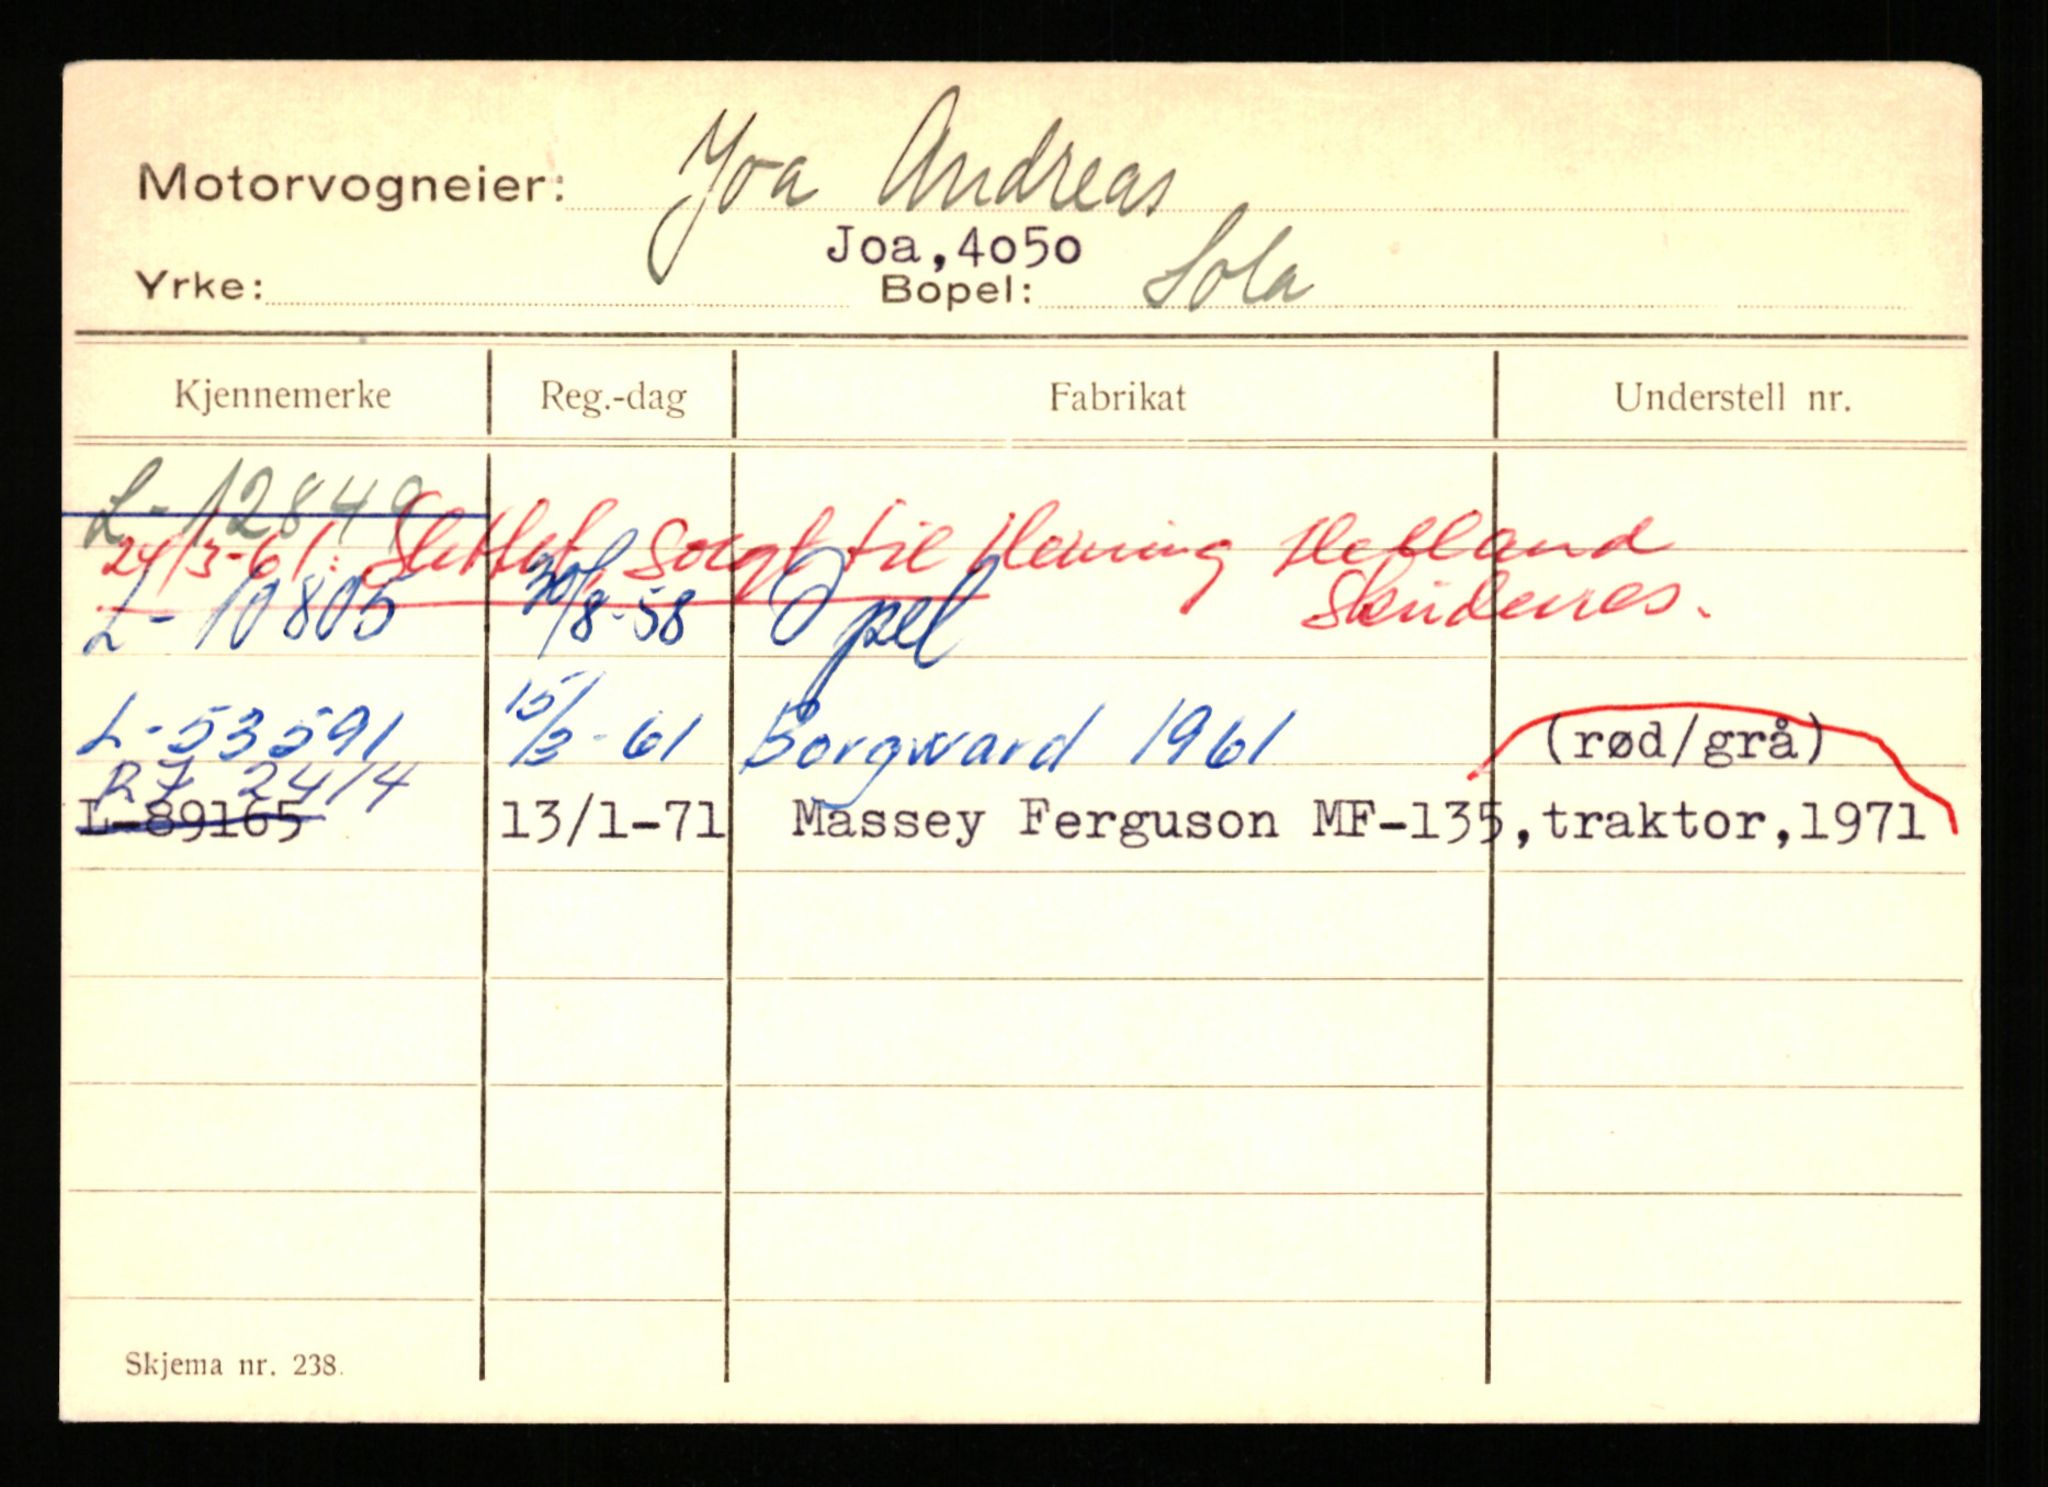 Motorvogneier: Joa Andreas
Joa,4050
Yrke: Bopel: Sola
Kjennemerke Reg.-dag Fabrikat Understell nr.
L-12849
24/3-61: Slettet, solgt til Henning Helland
Skudenes.
L-10805 30/8-58 Opel
L-53591 15/3-61 Borgward 1961 (rød/grå)
RF 2414
L-89165 13/1-71 Massey Ferguson MF-135,traktor,1971
Skjema nr. 238.